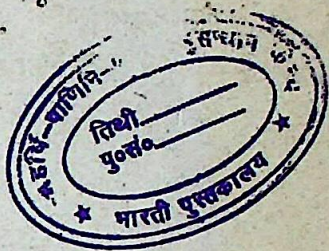 महर्षि-पाणिनि-
तिथी
पु०सं०
★ भारती पुस्तकालय ★